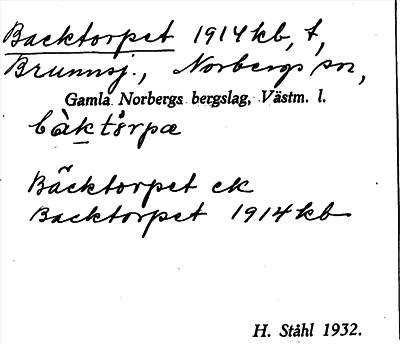 Backtorpet 1914 kb, t,
Brunnsj., Norbergs sn,
Gamla Norbergs bergslag, Västm. l.
bàktårpæ
Bäcktorpet ek
Backtorpet 1914 kb
H. Ståhl 1932.